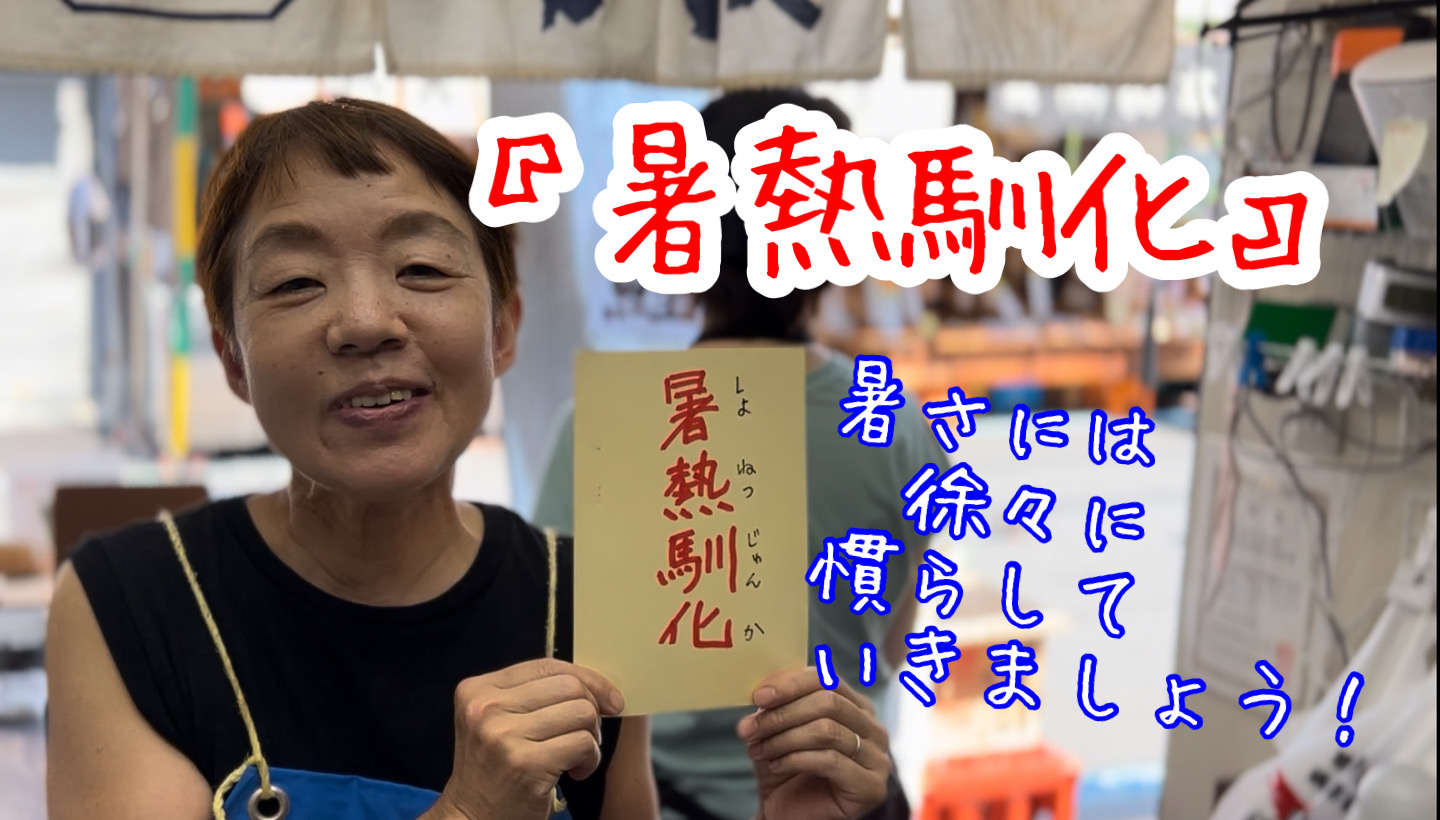 『暑熱馴化』
暑さには
徐々に
慣らして
いきましょう！
暑熱馴化
しょねつじゅんか